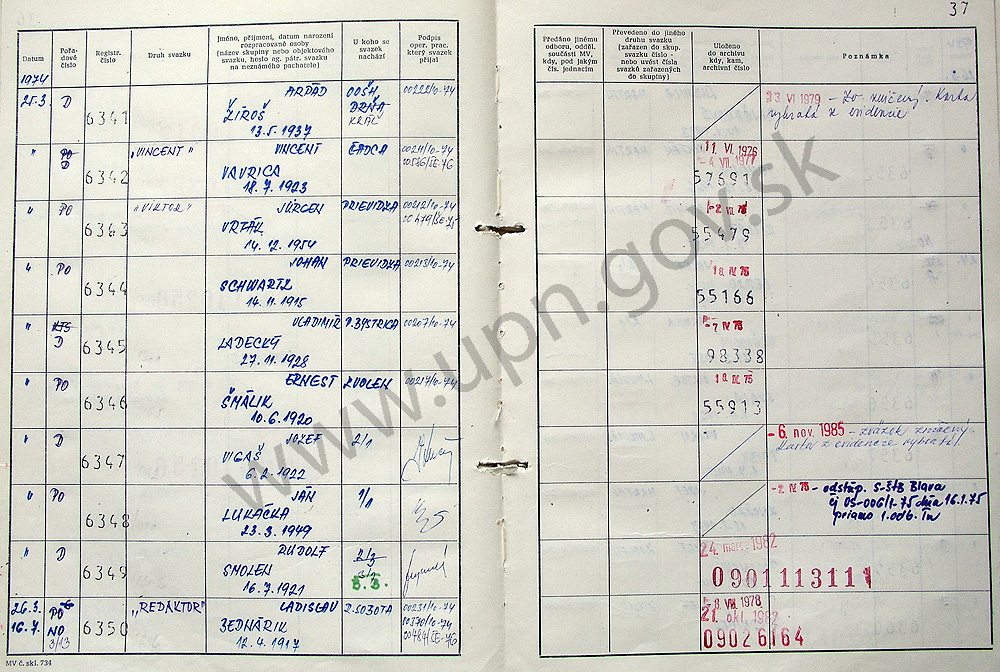 37
Datum
Pořa-
dové
číslo
Registr.
číslo
Druh svazku
Jméno, příjmení, datum narození
rozpracované osoby
(název skupiny nebo objektového
svazku, heslo ag. pátr. svazku
na neznámého pachatele)
U koho se
svazek
nachází
Podpis
oper. prac.
který svazek
přijal
Předáno jinému
odboru, odděl.
součásti MV,
kdy, pod jakým
čís. jednacím
Převedeno do jiného
druhu svazku
(zařazen do skup.
svazku číslo -
nebo uvést čísla
svazků zařazených
do skupiny)
Uloženo
do archivu
kdy, kam,
archivní číslo
Poznámka
1974
25.3. D 6341 ARPÁD OOŠH 00222/10-74
ŽIROŠ
13.5.1937
3 VI 1979
" PO
D 6342 „VINCENT" VINCENT ČADCA 00211/10-74
VAVRICA
18.7.1923
11. VI. 1976
-4. VII. 1977
57691
" PO 6343 „VIKTOR" JÜRGEN PRIEVIDZA 00212/10-74
VRTÁK
14.12.1954
55479
" PO 6344 JOHAN PRIEVIDZA 00213/10-74
SCHWARTZ
14.11.1915
55166
" KTS
D 6345 VLADIMÍR P.BYSTRICA 00207/10-74
LADECKÝ
27.11.1928
-7 IV 75
98338
" PO 6346 ERNEST ZVOLEN 00217/10-74
ŠMÁLIK
10.6.1920
55913
" D 6347 JOZEF 2/1
VIGAŠ
6.2.1922
- 6. nov. 1985 - zväzok zničený.
Karta z evidencie vybratá
" PO 6348 JÁN 1/1
LUKAČKA
23.3.1949
- odstúp. S-ŠtB Blava
čj OS-006/1-75 dňa 16.1.75
priamo 1.odb. Tn
" D 6349 RUDOLF 2/3
SMOLEN
16.7.1921
B.B.
24. mar. 1982
0901113111
26.3. PO
16.7. NO
3/13 6350 „REDAKTOR" LADISLAV R.SOBOTA 00231/10-74
BEDNÁRIK 00370/10-74
12.4.1917 00484/ČE-76
8. VIII. 1978
21. okt. 1982
09026164
MV č. skl. 734
www.upn.gov.sk